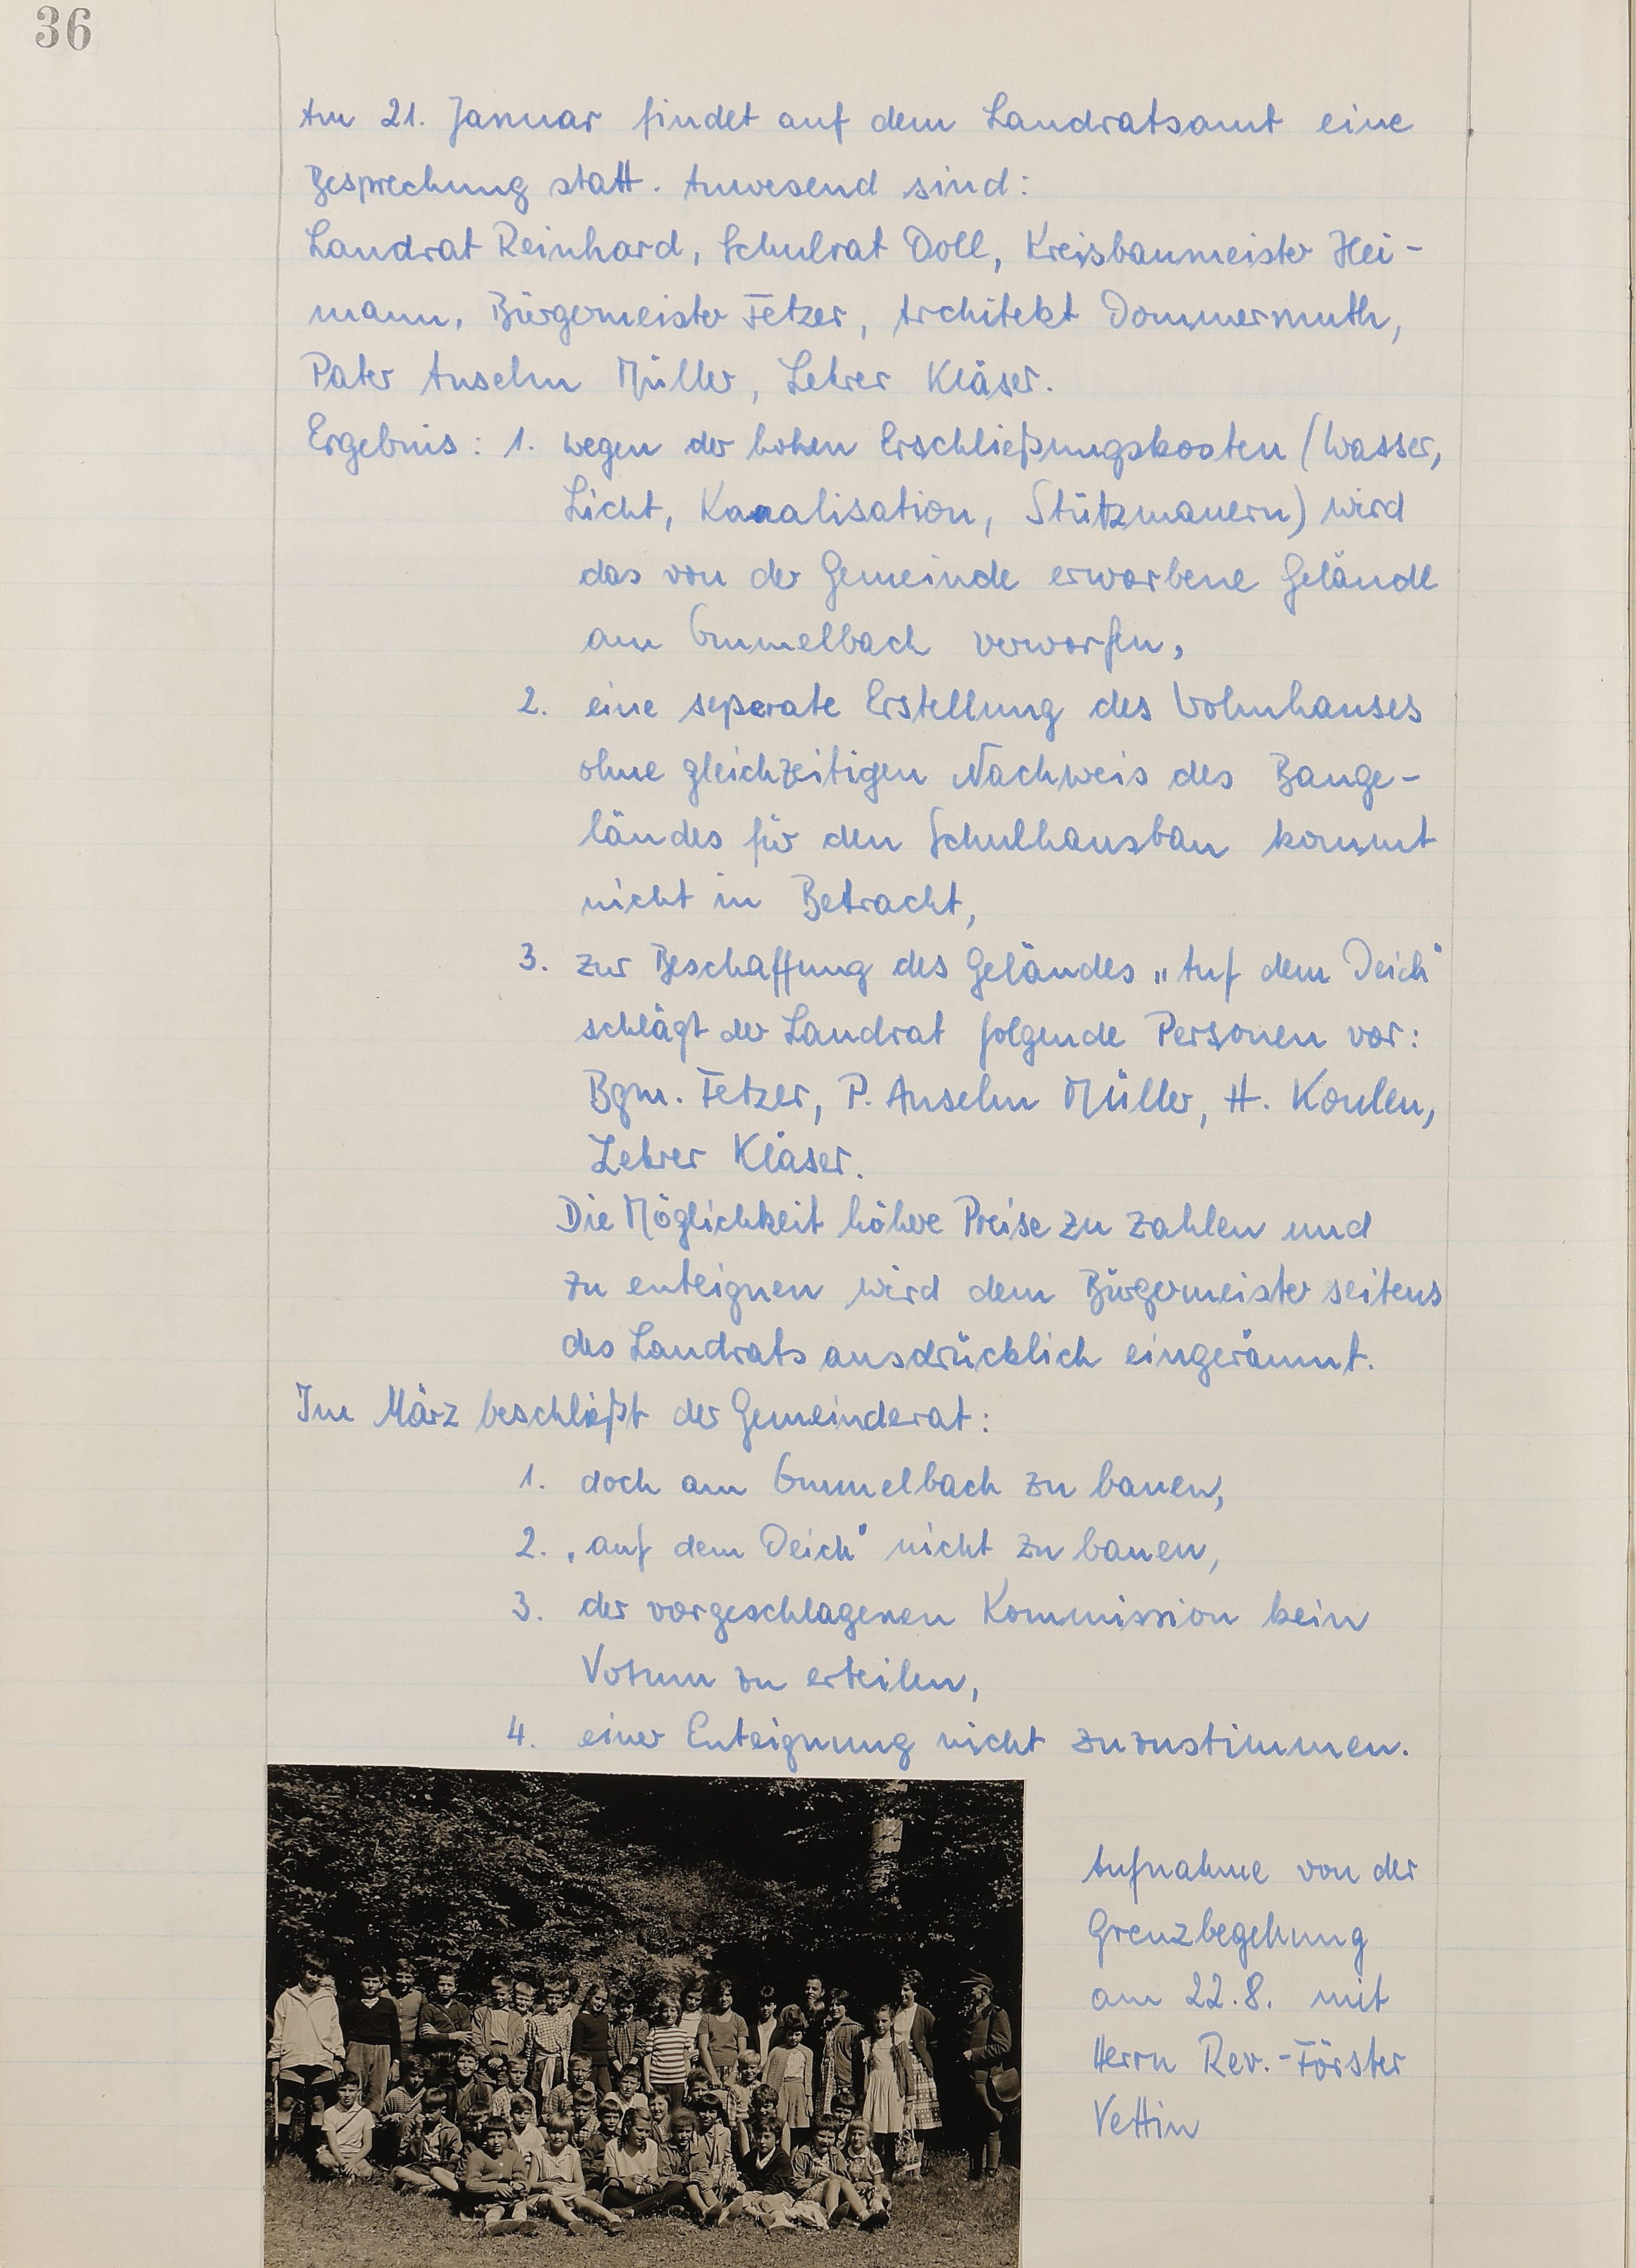 36
Am 21. Januar findet auf dem Landratsamt eine
Besprechung statt. Anwesend sind:
Landrat Reinhard, Schulrat Doll, Kreisbaumeister Hei-
mann, Bürgermeister Fetzer, Architekt Dommermuth,
Pater Anselm Müller, Lehrer Kläser.
Ergebnis: 1. wegen der hohen Erschließungskosten (Wasser,
Licht, Kanalisation, Stützmauern) wird
das von der Gemeinde erworbene Gelände
am Ommelbach verworfen,
2. eine seperate Erstellung des Wohnhauses
ohne gleichzeitigen Nachweis des Bauge-
ländes für den Schulhausbau kommt
nicht in Betracht,
3. zur Beschaffung des Geländes „Auf dem Deich"
schlägt der Landrat folgende Personen vor:
Bgm. Fetzer, P. Anselm Müller, H. Koulen,
Lehrer Kläser.
Die Möglichkeit höhere Preise zu zahlen und
zu enteignen wird dem Bürgermeister seitens
des Landrats ausdrücklich eingeräumt.
Im März beschließt der Gemeinderat:
1. doch am Ommelbach zu bauen,
2. „auf dem Deich" nicht zu bauen,
3. der vorgeschlagenen Kommission kein
Votum zu erteilen,
4. einer Enteignung nicht zuzustimmen.
Aufnahme von der
Grenzbegehung
am 22.8. mit
Herrn Rev.-Förster
Vettin